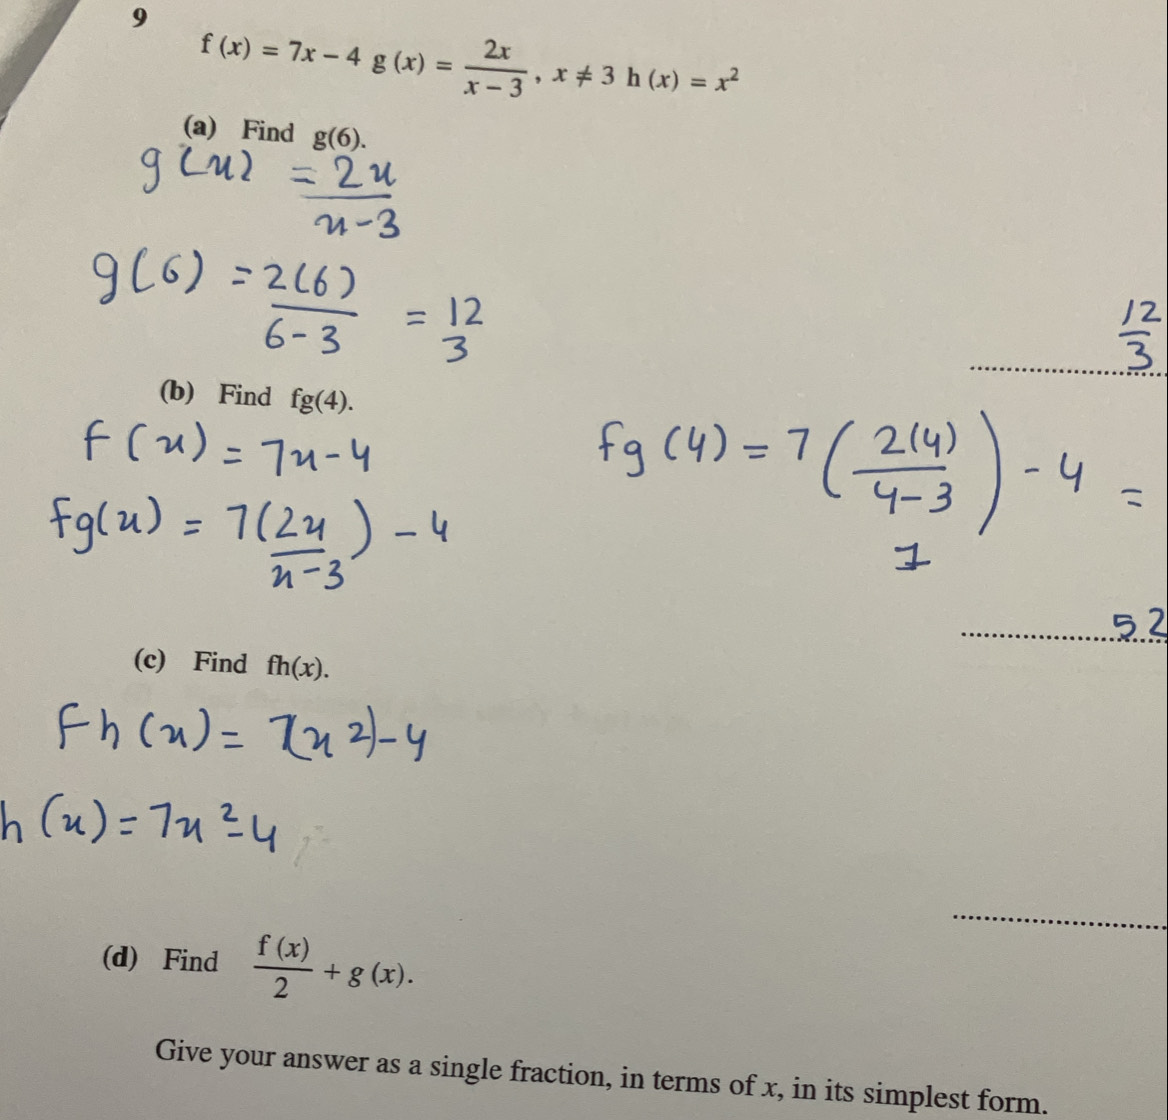 9
f (x) = 7x – 4 g (x) = 2x/(x – 3) , x ≠ 3 h (x) = x²
(a) Find g(6).
g(x) = 2x/(x-3)
g(6) = 2(6)/(6-3) = 12/3
12/3
(b) Find fg(4).
f(x) = 7x-4
fg(4) = 7(2(4)/(4-3)) - 4 =
fg(x) = 7(2x/(x-3)) - 4
1
52
(c) Find fh(x).
Fh(x) = 7(x2)-4
h(x) = 7x²-4
(d) Find f (x)/2 + g (x).
Give your answer as a single fraction, in terms of x, in its simplest form.